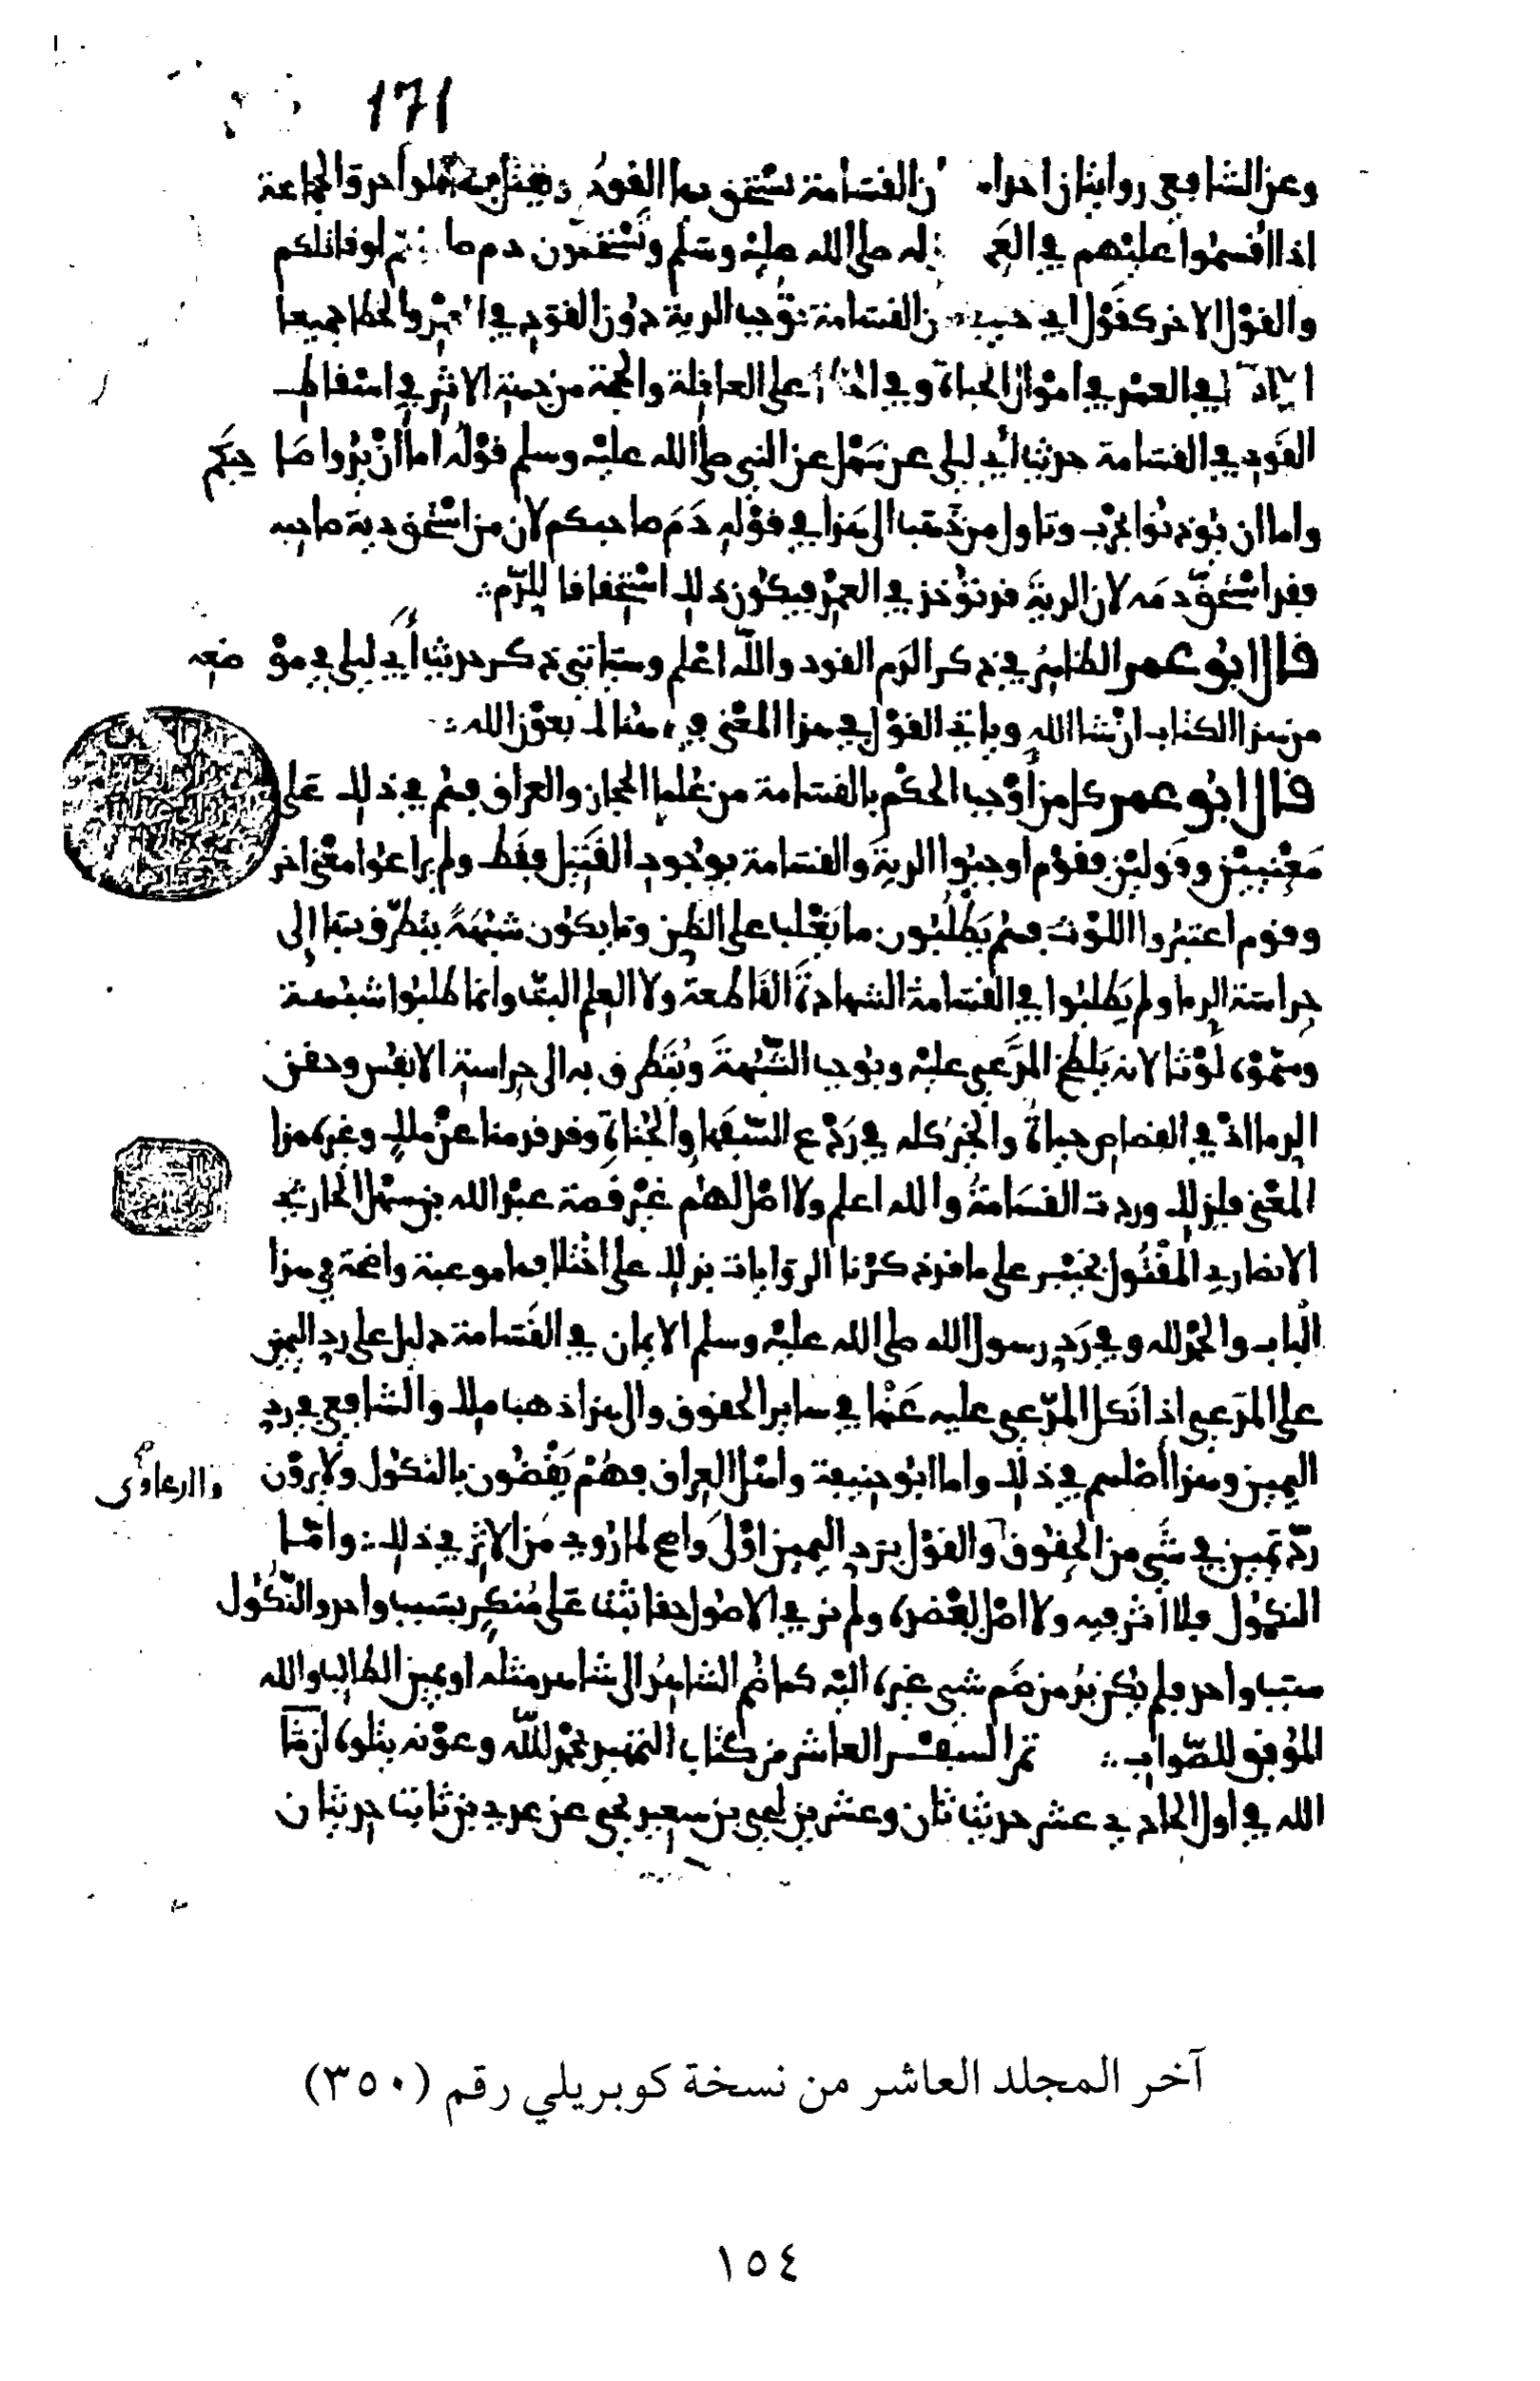 171
وعن الشافعي روايتان احداهما ان القسامة يستحق بها القود ويقتل بها الواحد والجماعة
اذا اقسموا عليهم في العمد لقوله صلى الله عليه وسلم وتستحقون دم صاحبكم او قاتلكم
والقول الاخر كقول ابي حنيفة ان القسامة توجب الدية دون القود في العمد والخطا جميعا
الا انها في العمد في اموال الجناة وفي الخطا على العاقلة والحجة من جهة الاثر في اسقاط
القود في القسامة حديث ابي ليلى عن سهل عن النبي صلى الله عليه وسلم قوله اما ان يدوا صاحبكم
واما ان يوذنوا بحرب وتاول من ذهب الى هذا في قوله دم صاحبكم لان من استحق دية صاحبه
فقد استحق دمه لان الدية قد توخذ في العمد فيكون ذلك استحقاقا للدم
قال ابو عمر الظاهر في ذكر الدم القود والله اعلم وسياتي ذكر حديث ابي ليلى في موضعه
من هذا الكتاب ان شا الله وياتي القول في هذا المعنى هنالك بعون الله
قال ابو عمر كل من اوجب الحكم بالقسامة من علما الحجاز والعراق فهم في ذلك على
معنيين وقولين فقوم اوجبوا الدية والقسامة بوجود القتيل فقط ولم يراعوا معنى اخر
وقوم اعتبروا اللوث فهم يطلبون ما يغلب على الظن وما يكون شبهة يتطرق بها الى
حراسة الدما ولم يطلبوا في القسامة الشهادة القاطعة ولا العلم البت وانما طلبوا شبهة
وسموه لوثا لانه يلطخ المدعى عليه ويوجب الشبهة ويتطرق به الى حراسة الانفس وحقن
الدما اذ في القصاص حياة والخير كله في ردع السفها والجناة وقد قدمنا عن ملك وغيره هذا
المعنى فلذلك وردت القسامة والله اعلم ولا اصل لهم غير قصة عبد الله بن سهل الحارثي
الانصاري المقتول بخيبر على ما قد ذكرنا الروايات بذلك على اختلافها موعبة واضحة في هذا
الباب والحمد لله وفي رد رسول الله صلى الله عليه وسلم الايمان في القسامة دليل على رد اليمين
على المدعي اذا نكل المدعى عليه عنها في ساير الحقوق والى هذا ذهب ملك والشافعي في رد
اليمين وهذا اصلهم في ذلك واما ابو حنيفة واهل العراق فهم يقضون بالنكول ولا يرون
والدعاوى
رد يمين في شي من الحقوق والقول برد اليمين اولى واصح لما روي من الاثر في ذلك واما
النكول فلا اثر فيه ولا اصل يعضده ولم نر في الاصول حقا ثبت على منكر بسبب واحد والنكول
سبب واحد فلم يكن بد من ضم شي غيره اليه كما ضم الشاهد الى شاهد مثله او يمين الطالب والله
الموفق للصواب تم السفر العاشر من كتاب التمهيد بحمد الله وعونه يتلوه ان شا
الله في اول الحادي عشر حديث ثان وعشرين ليحيى بن سعيد يحيى عن عدي بن ثابت حديثان
آخر المجلد العاشر من نسخة كوبريلي رقم (٣٥٠)
١٥٤